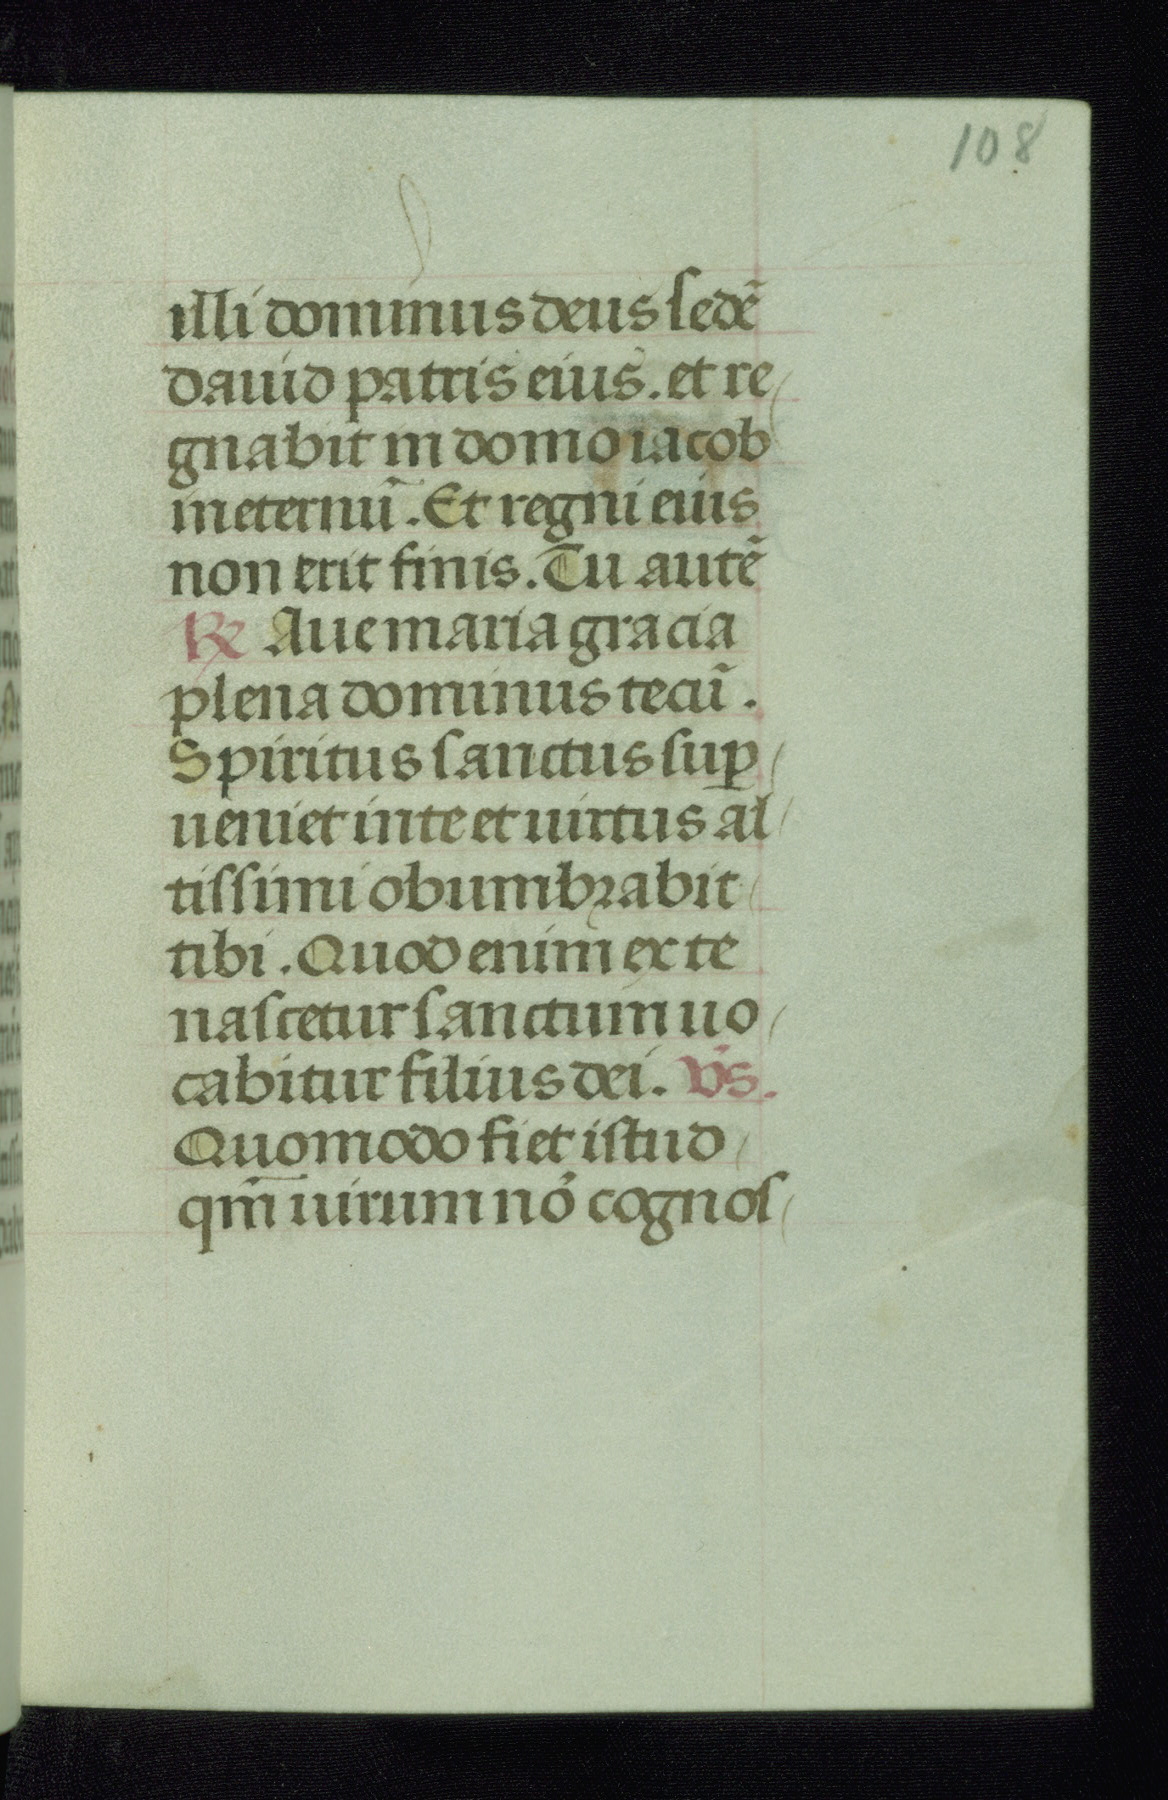 108
illi dominus deus sedē
dauid patris eius. et re
gnabit in domo iacob
in eternū. Et regni eius
non erit finis. Tu autē
℟ Aue maria gracia
plena dominus tecū.
Spiritus sanctus suꝑ
ueniet in te et uirtus al
tissimi obumbrabit
tibi. Quod enim ex te
nascetur sanctum uo
cabitur filius dei. v̄s.
Quomodo fiet istud
qm̄ uirum nō cognos